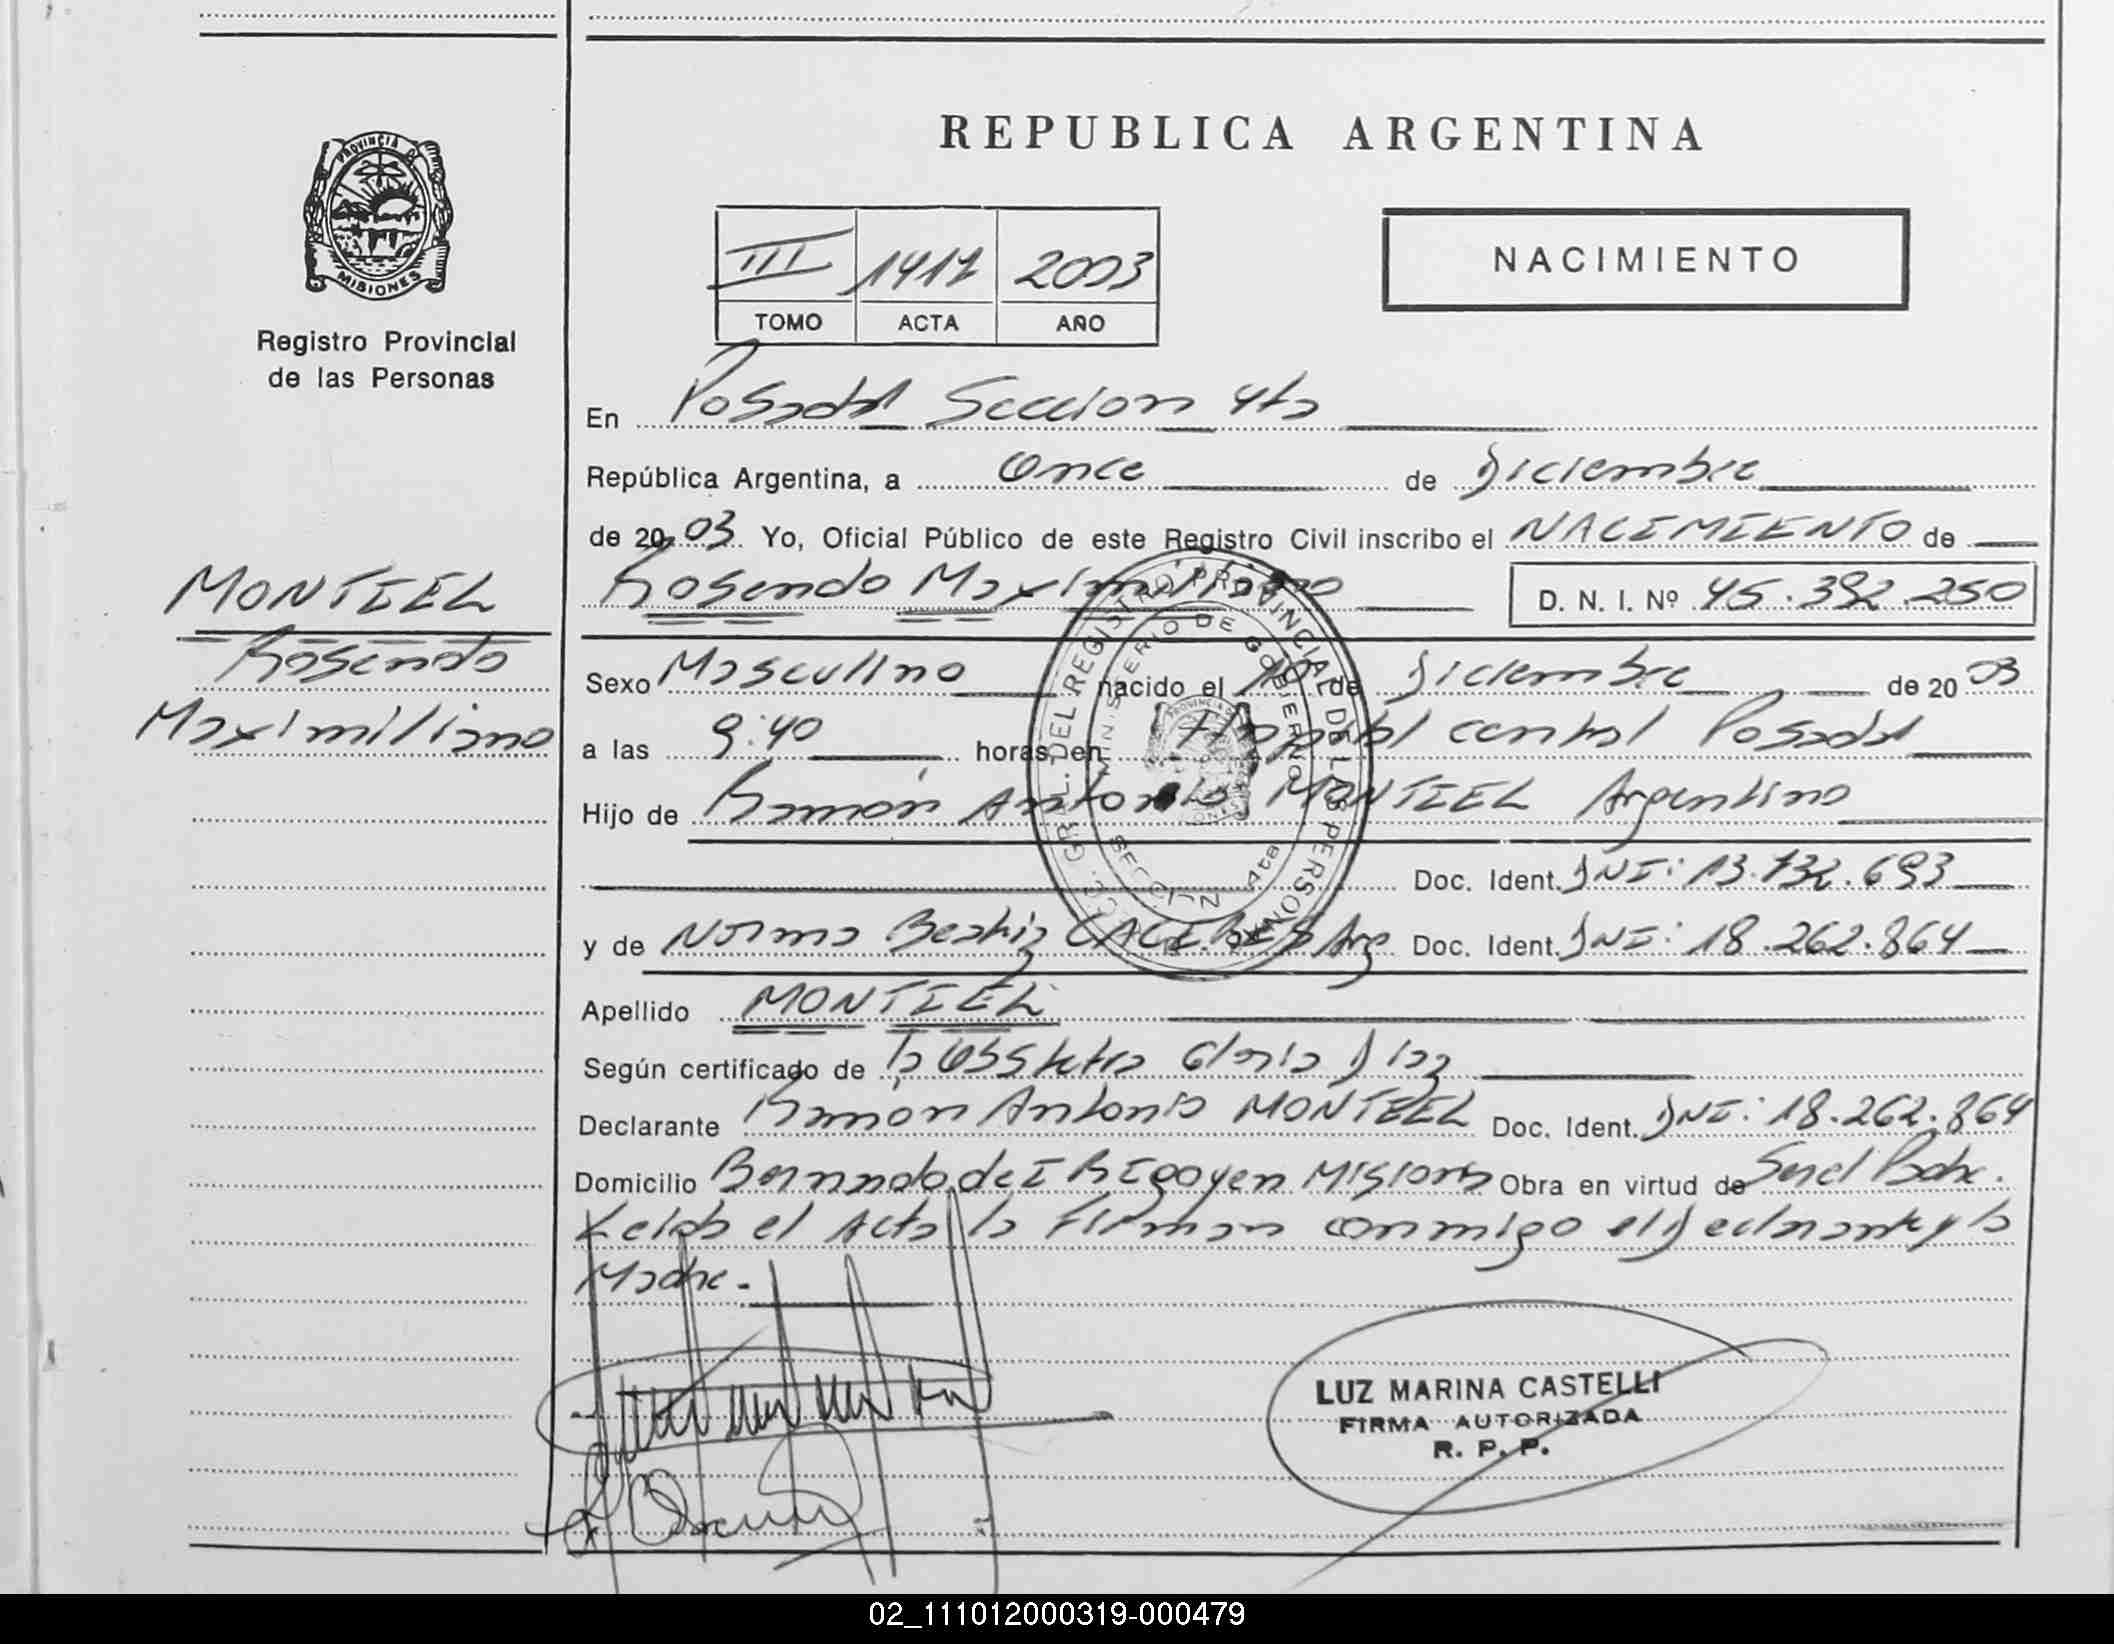 REPUBLICA ARGENTINA
PROVINCIA D
MISIONES
Registro Provincial
de las Personas
III 1417 2003
TOMO ACTA AÑO
NACIMIENTO
En Posadas Seccion 4ta
República Argentina, a Once de Diciembre
de 2003 Yo, Oficial Público de este Registro Civil inscribo el NACIMIENTO de
MONTIEL
Rosendo
Maximiliano
Rosendo Maximiliano D. N. I. Nº 45.392.250
Sexo Masculino nacido el 10 de Diciembre de 2003
a las 9:40 horas en Hospital central Posadas
Hijo de Ramón Antonio MONTIEL Argentino
Doc. Ident. DNI: 13.732.693
y de Norma Beatriz CACERES Arg Doc. Ident. DNI: 18.262.864
Apellido MONTIEL
Según certificado de la Obstetra Gloria Diaz
Declarante Ramón Antonio MONTIEL Doc. Ident. DNI: 18.262.864
Domicilio Bernardo de IRIGOYEN Misiones Obra en virtud de Ser el Padre.
Leida el Acta la Firman conmigo el Declarante y la
Madre.
GRAL. DEL REGISTRO PROVINCIAL DE LAS PERSONAS
MINISTERIO DE GOBIERNO
SECCION 4ta
LUZ MARINA CASTELLI
FIRMA AUTORIZADA
R. P. P.
02_111012000319-000479